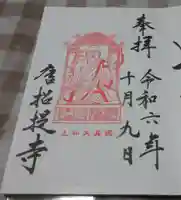 奉拝
令和六年
十月九日
唐招提寺